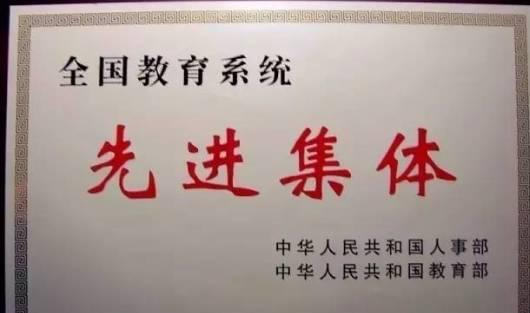 全国教育系统
先进集体
中华人民共和国人事部
中华人民共和国教育部